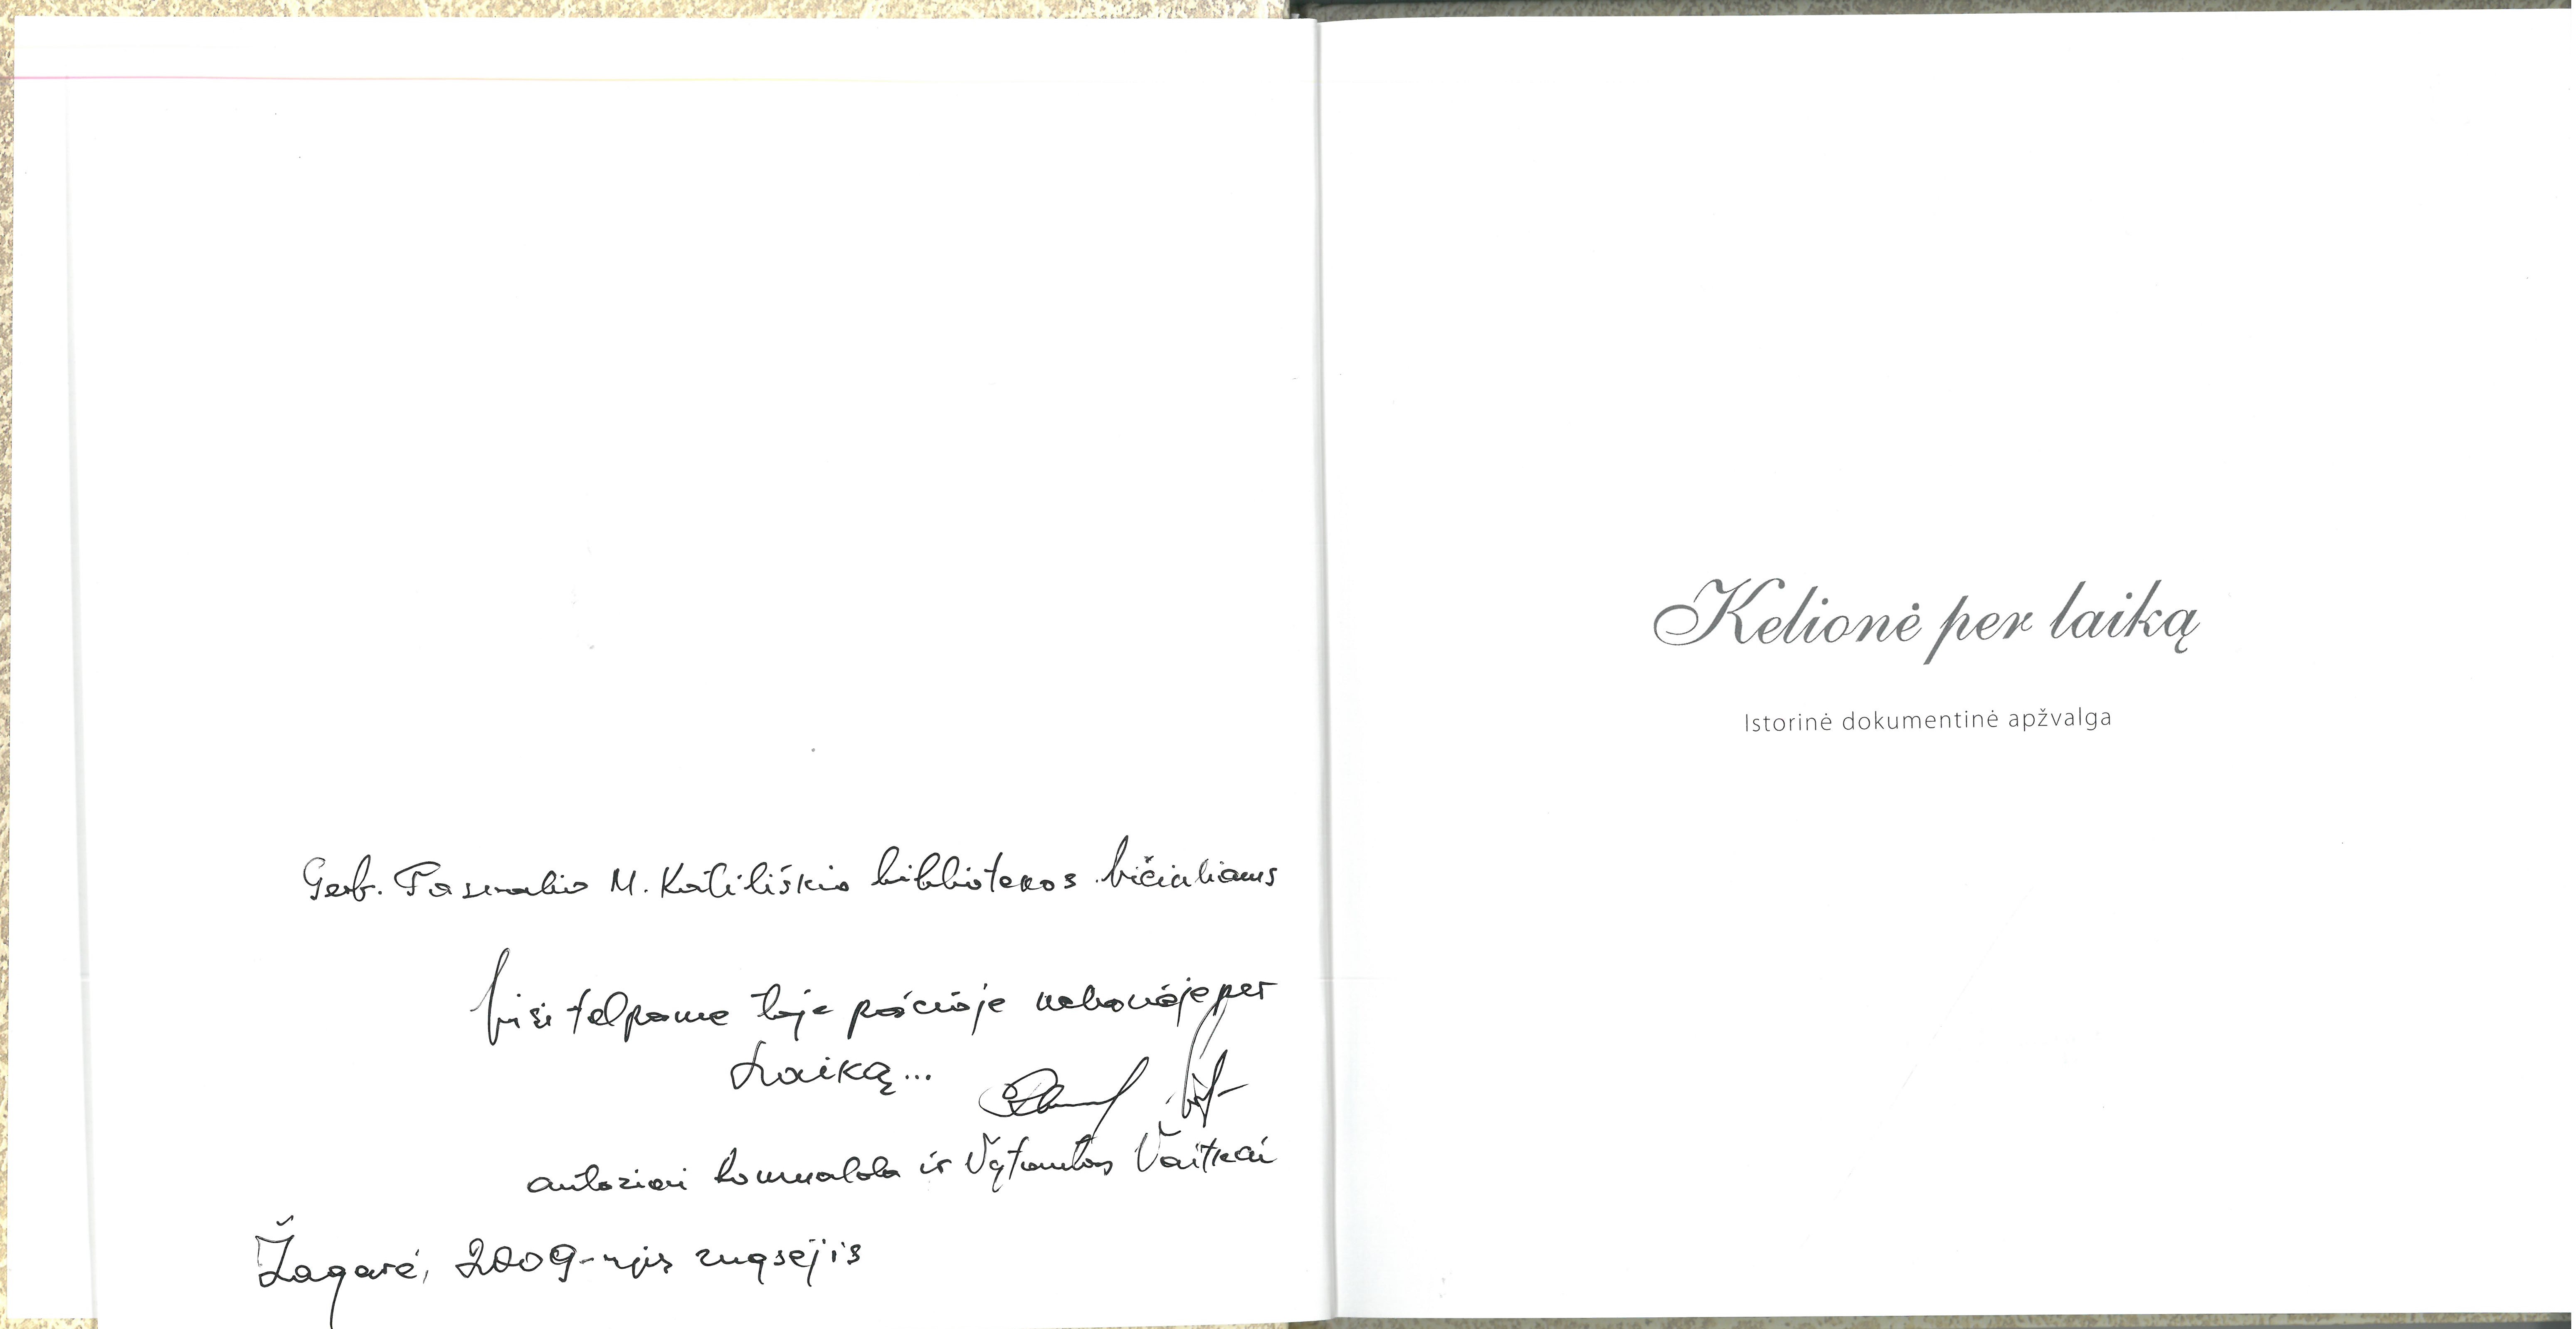 Gerb. Pasvalio M. Katiliškio bibliotekos bičiuliams
Visi telpame toje pačioje kelionėje per
Laiką...
autoriai Romualda ir Vytautas Vaitkai
Žagarė, 2009-ųjų rugsėjis
Kelionė per laiką
Istorinė dokumentinė apžvalga